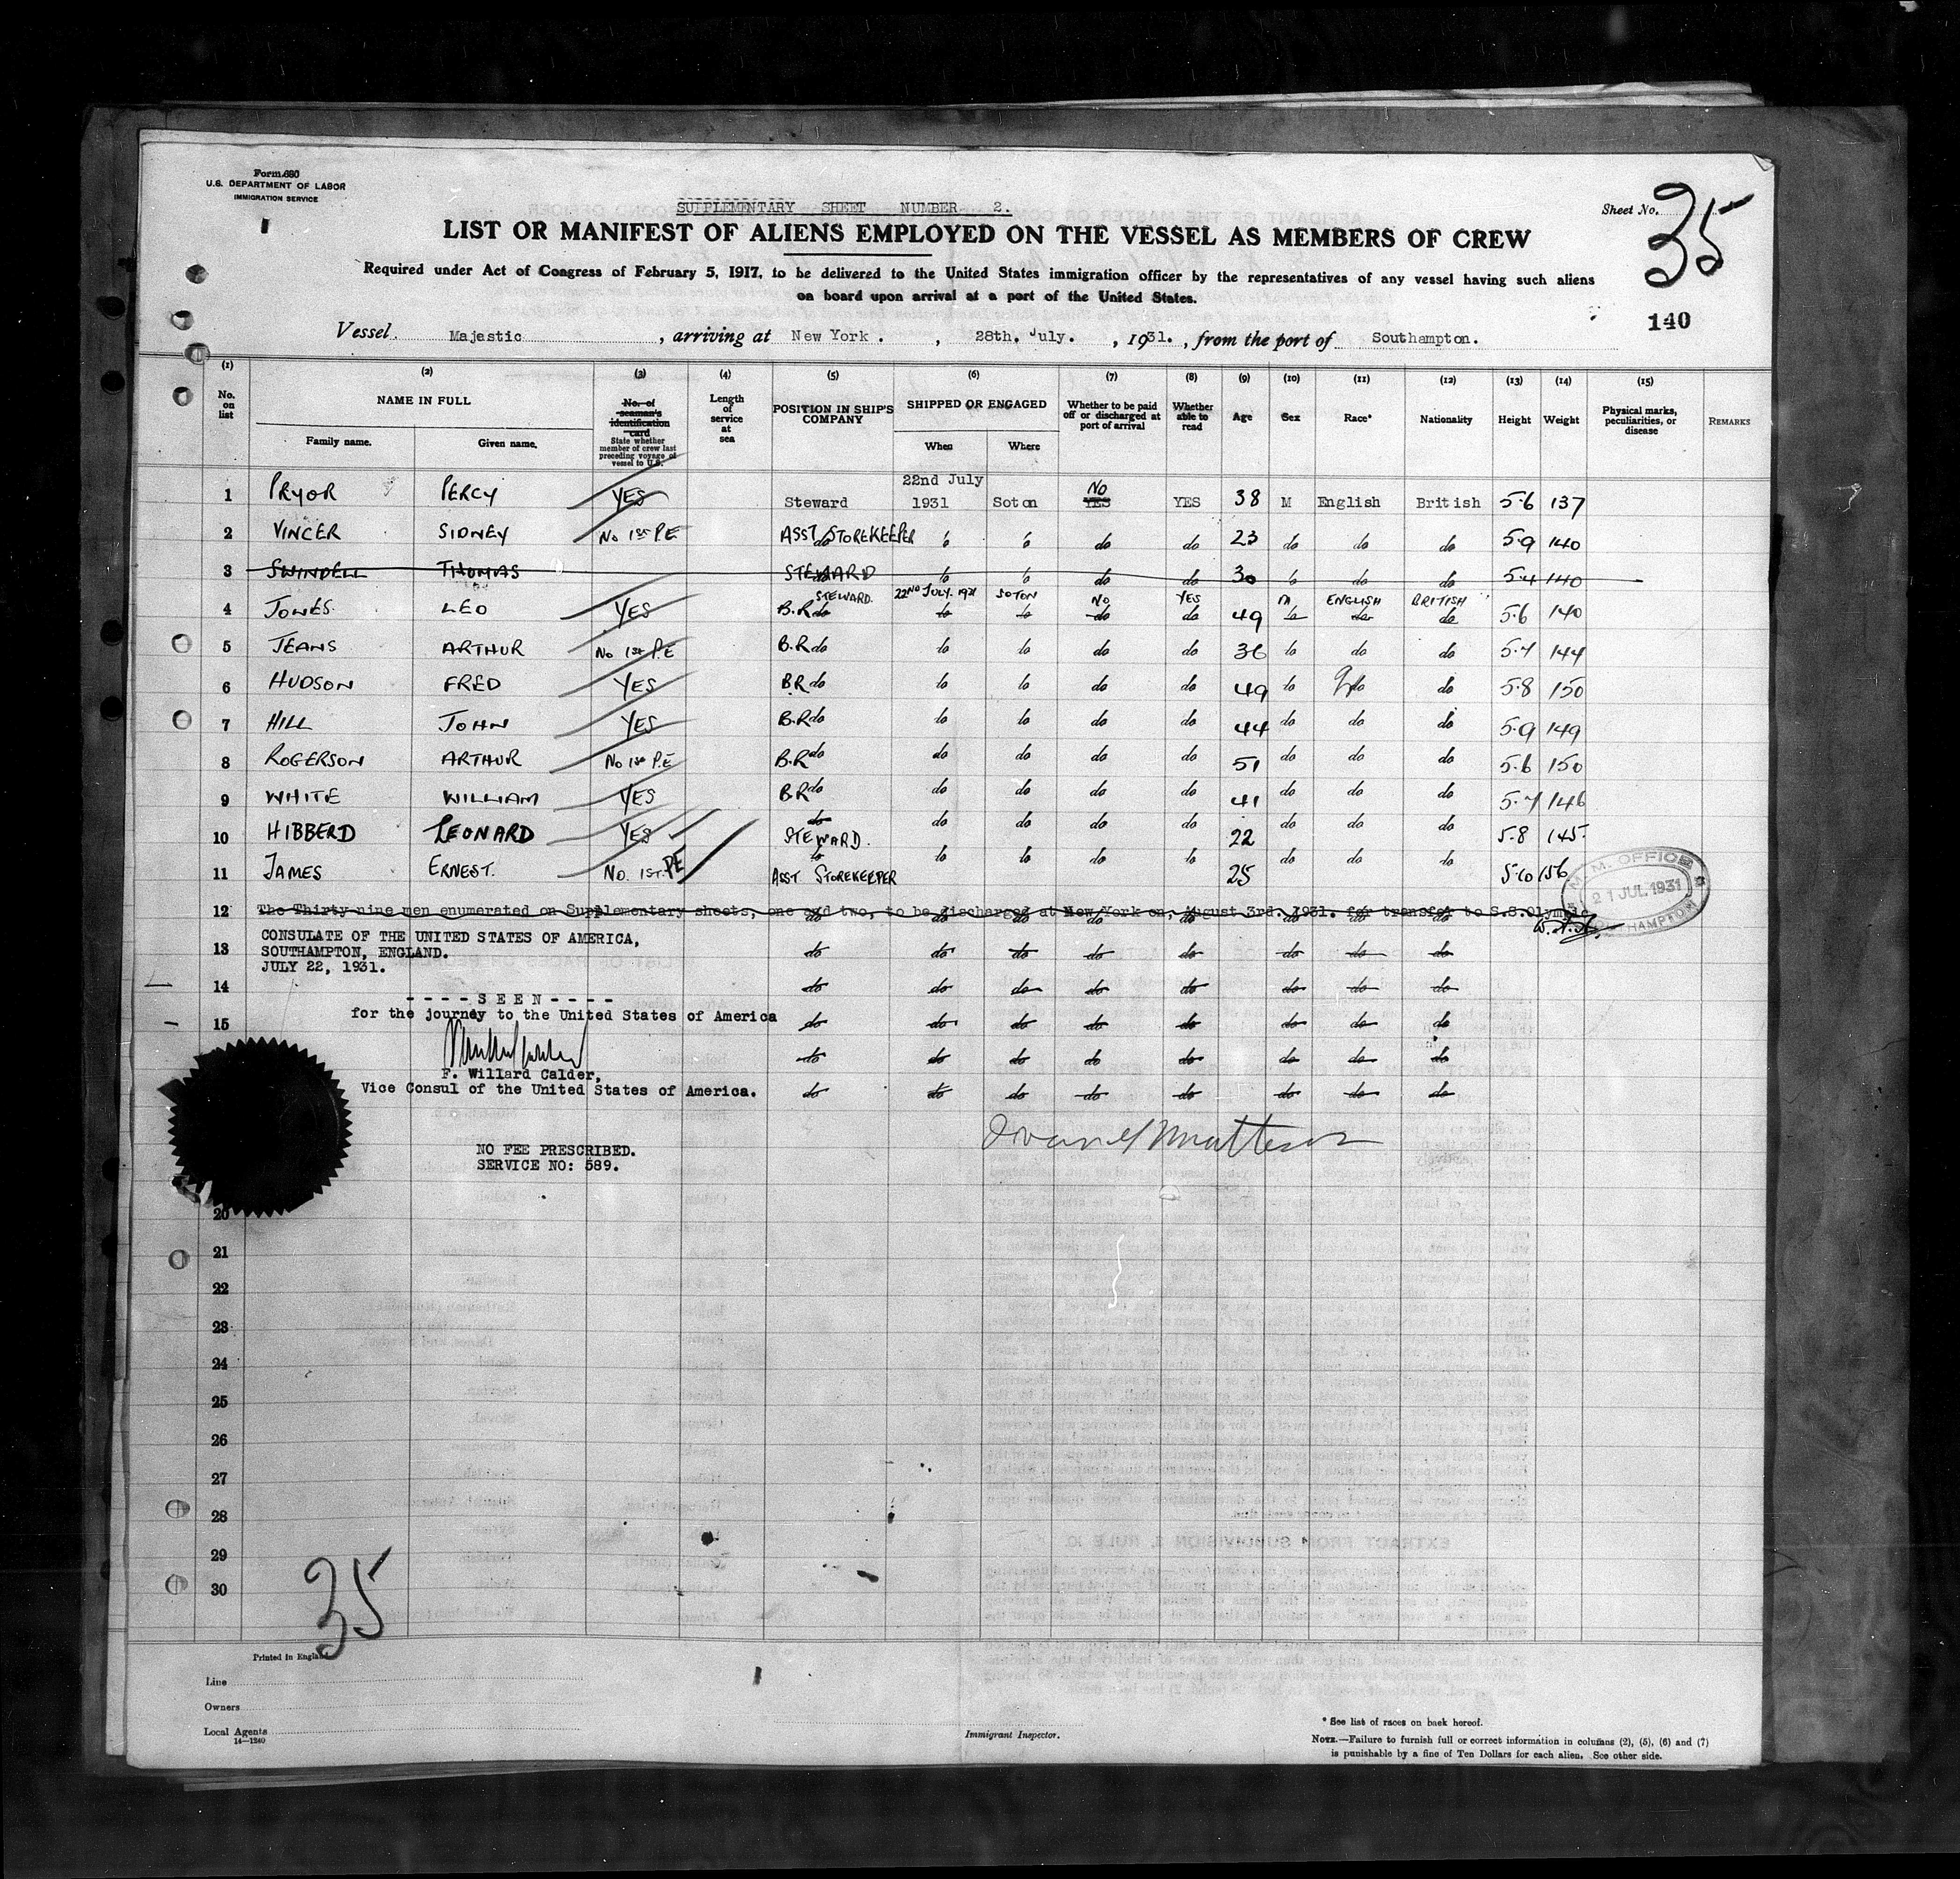 Form 680
U.S. DEPARTMENT OF LABOR
IMMIGRATION SERVICE
SUPPLEMENTARY SHEET NUMBER 2.
Sheet No. 35
LIST OR MANIFEST OF ALIENS EMPLOYED ON THE VESSEL AS MEMBERS OF CREW
Required under Act of Congress of February 5, 1917, to be delivered to the United States immigration officer by the representatives of any vessel having such aliens
on board upon arrival at a port of the United States.
140
Vessel Majestic , arriving at New York . , 28th. July. , 1931. , from the port of Southampton.
(1) (2) (3) (4) (5) (6) (7) (8) (9) (10) (11) (12) (13) (14) (15)
No. on list NAME IN FULL Family name. Given name. No. of seaman's identification card State whether member of crew last preceding voyage of vessel to U.S. Length of service at sea POSITION IN SHIP'S COMPANY SHIPPED OR ENGAGED When Where Whether to be paid off or discharged at port of arrival Whether able to read Age Sex Race* Nationality Height Weight Physical marks, peculiarities, or disease REMARKS
1 PRYOR PERCY YES Steward 22nd July 1931 Soton NO YES YES 38 M English British 5·6 137
2 VINCER SIDNEY No 1st P.E ASST STOREKEEPER do do do do do 23 do do do 5·9 140
3 SWINDELL THOMAS STEWARD do do do do do 30 do do do 5·4 140
4 JONES LEO YES B.R do STEWARD. 22ND JULY. 1931 do SOTON do NO do YES do 49 M do ENGLISH do BRITISH do 5·6 140
5 JEANS ARTHUR No 1st P.E B.R do do do do do 36 do do do 5·7 144
6 HUDSON FRED YES B.R do do do do do 49 do do do 5·8 150
7 HILL JOHN YES B.R do do do do do 44 do do do 5·9 149
8 ROGERSON ARTHUR No 1st P.E B.R do do do do do 51 do do do 5·6 150
9 WHITE WILLIAM YES B.R do do do do do 41 do do do 5·7 146
10 HIBBERD LEONARD YES do STEWARD. do do do do 22 do do do 5·8 145·
11 JAMES ERNEST. No. 1ST. PE do ASST. STOREKEEPER do do do do 25 do do do 5·10 156
M. OFFICE
21 JUL 1931
HAMPTON
12 The Thirty-nine men enumerated on Supplementary sheets, one and two, to be discharged at New York on, August 3rd. 1931. for transfer to S.S.Olympic
do do do do do do do do
CONSULATE OF THE UNITED STATES OF AMERICA,
13 SOUTHAMPTON, ENGLAND. do do do do do do do do
JULY 22, 1931.
14 do do do do do do do do
- - - - S E E N - - - -
for the journey to the United States of America
15 do do do do do do do do
do do do do do do do do
F. Willard Calder,
Vice Consul of the United States of America. do do do do do do do do
NO FEE PRESCRIBED.
SERVICE NO: 589.
20
21
22
23
24
25
26
27
28
29
30
35
Printed in England
Line
Owners
Local Agents
14—1240
Immigrant Inspector.
* See list of races on back hereof.
NOTE.—Failure to furnish full or correct information in columns (2), (5), (6) and (7)
is punishable by a fine of Ten Dollars for each alien. See other side.